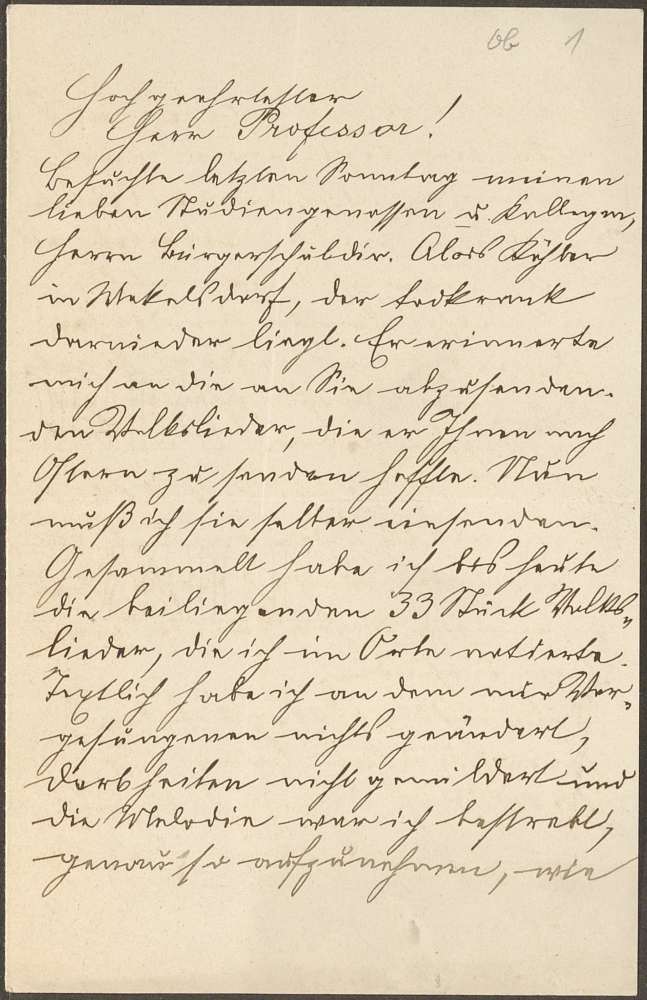 Ob 1
Hochgeehrtester
Herr Professor!
Besuchte letzten Sonntag meinen
lieben Studiengenossen u. Kollegen,
Herrn Bürgerschuldir. Alois Köhler
in Wekelsdorf, der todkrank
darnieder liegt. Er erinnerte
mich an die an Sie abzusenden-
den Volkslieder, die er Ihnen nach
Ostern zu senden hoffte. Nun
muß ich sie selber einsenden.
Gesammelt habe ich bis heute
die beiliegenden 33 Stück Volks-
lieder, die ich im Orte notierte.
Textlich habe ich an dem mir Vor-
gesungenen nichts geändert,
Derbheiten nicht gemildert und
die Melodie war ich bestrebt,
genau so aufzunehmen, wie